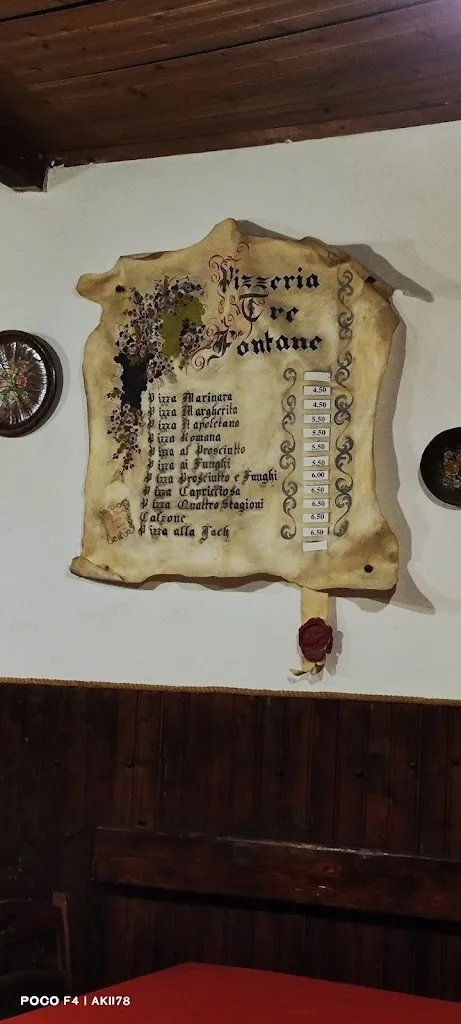 Pizzeria
Tre
Fontane
Pizza Marinara 4.50
Pizza Margherita 4.50
Pizza Napoletana 5.50
Pizza Romana 5.50
Pizza al Prosciutto 5.50
Pizza ai Funghi 5.50
Pizza Prosciutto e Funghi 6.00
Pizza Capricciosa 6.50
Pizza Quattro Stagioni 6.50
Calzone 6.50
Pizza alla Jack 6.50
POCO F4 | AKII78